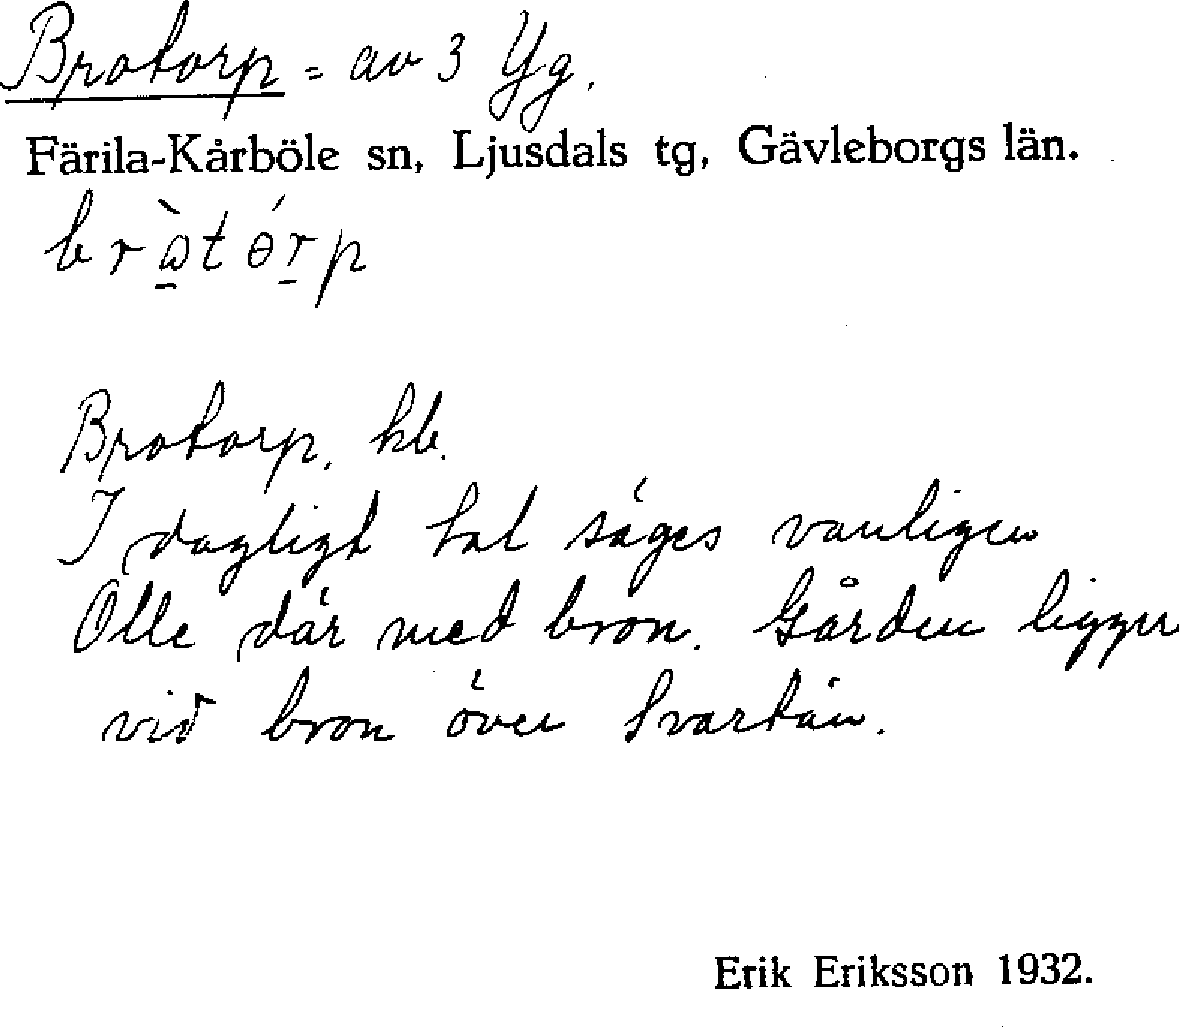 Brotorp = av 3 Yg.
Färila-Kårböle sn, Ljusdals tg, Gävleborgs län.
brὼ̲tɵ́r̲p
Brotorp, hb.
I dagligt tal säges vanligen
Olle där med bron. Gården ligger
vid bron över Svartån.
Erik Eriksson 1932.